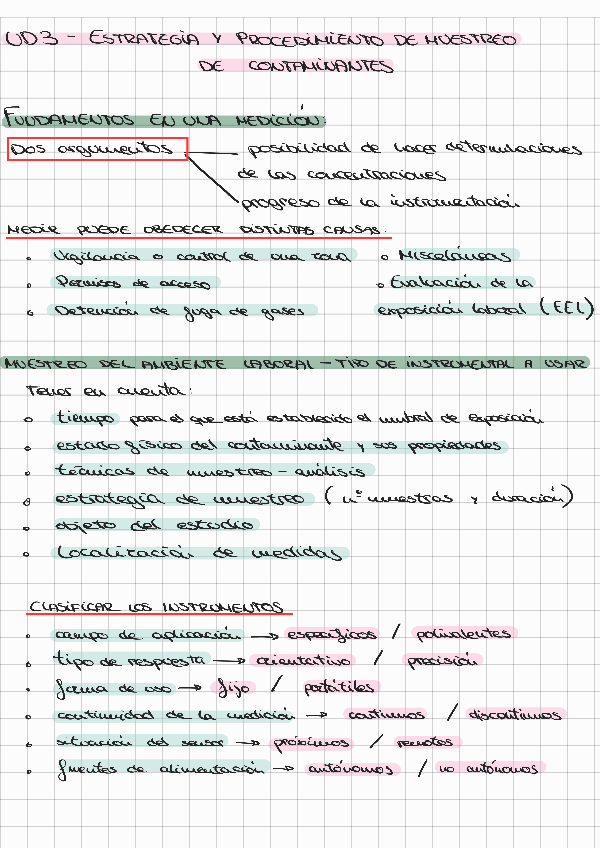 UD3 - ESTRATEGIA Y PROCEDIMIENTO DE MUESTREO
DE CONTAMINANTES
FUNDAMENTOS EN UNA MEDICIÓN:
Dos argumentos posibilidad de hacer determinaciones
de las concentraciones
progreso de la instrumentación
MEDIR PUEDE OBEDECER DISTINTAS CAUSAS:
Vigilancia o control de una zona
Permisos de acceso
Detención de fuga de gases
Misceláneas
Evaluación de la
exposición laboral (EEL)
MUESTREO DEL AMBIENTE LABORAL - TIPO DE INSTRUMENTAL A USAR
Tener en cuenta:
tiempo para el que está establecido el umbral de exposición
estado físico del contaminante y sus propiedades
técnicas de muestreo - análisis
estrategia de muestreo (nº muestras y duración)
objeto del estudio
localización de medidas
CLASIFICAR LOS INSTRUMENTOS
campo de aplicación → específicos / polivalentes
tipo de respuesta → orientativo / precisión
forma de uso → fijo / portátiles
continuidad de la medición → continuos / discontinuos
situación del sensor → próximos / remotos
fuentes de alimentación → autónomos / no autónomos